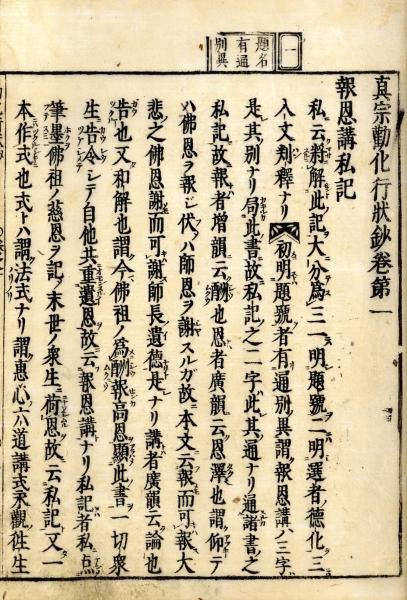 一
題名
有通
別異
真宗勸化行狀鈔卷第一
報恩講私記
私云將解此記大分為三一明題號二明選者ノ德化三
入文判釋ナリ初明題號者有通別異謂報恩講ノ三字
是其別ナリ局此書故私記之二字此其通ナリ通諸書之
私記故報者增韻云酬也恩者廣韻云恩澤也謂仰テ
ハ佛恩ヲ報ジ伏テハ師恩ヲ謝スルガ故本文云報而可報大
悲之佛恩謝而可謝師長遺德是ナリ講者廣韻云論也
告也又和解也謂今佛祖ノ為酬報高恩顯此書一切衆
生告令シテノ自他共重遺恩故云報恩講ナリ私記者私点
筆墨佛祖ノ慈恩ヲ記ノ末世ノ衆生荷恩故云私記又一
本作式也式トハ謂法式ナリ謂惠心六道講式永觀徃生